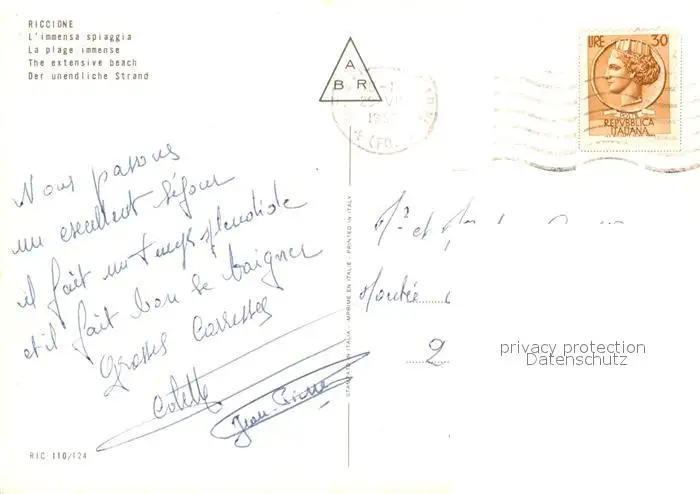 RICCIONE
L'immensa spiaggia
La plage immense
The extensive beach
Der unendliche Strand
A
B R
LIRE 30
REPVBBLICA
ITALIANA
Nous passons
un excellent séjour
il fait un temps splendide
et il fait bon se baigner
Grosses Caresses
Colette
Jean-Pierre
STAMPATO IN ITALIA - IMPRIMÉ EN ITALIE - PRINTED IN ITALY
Mr et
Montée
2
privacy protection
Datenschutz
RIC 110/124